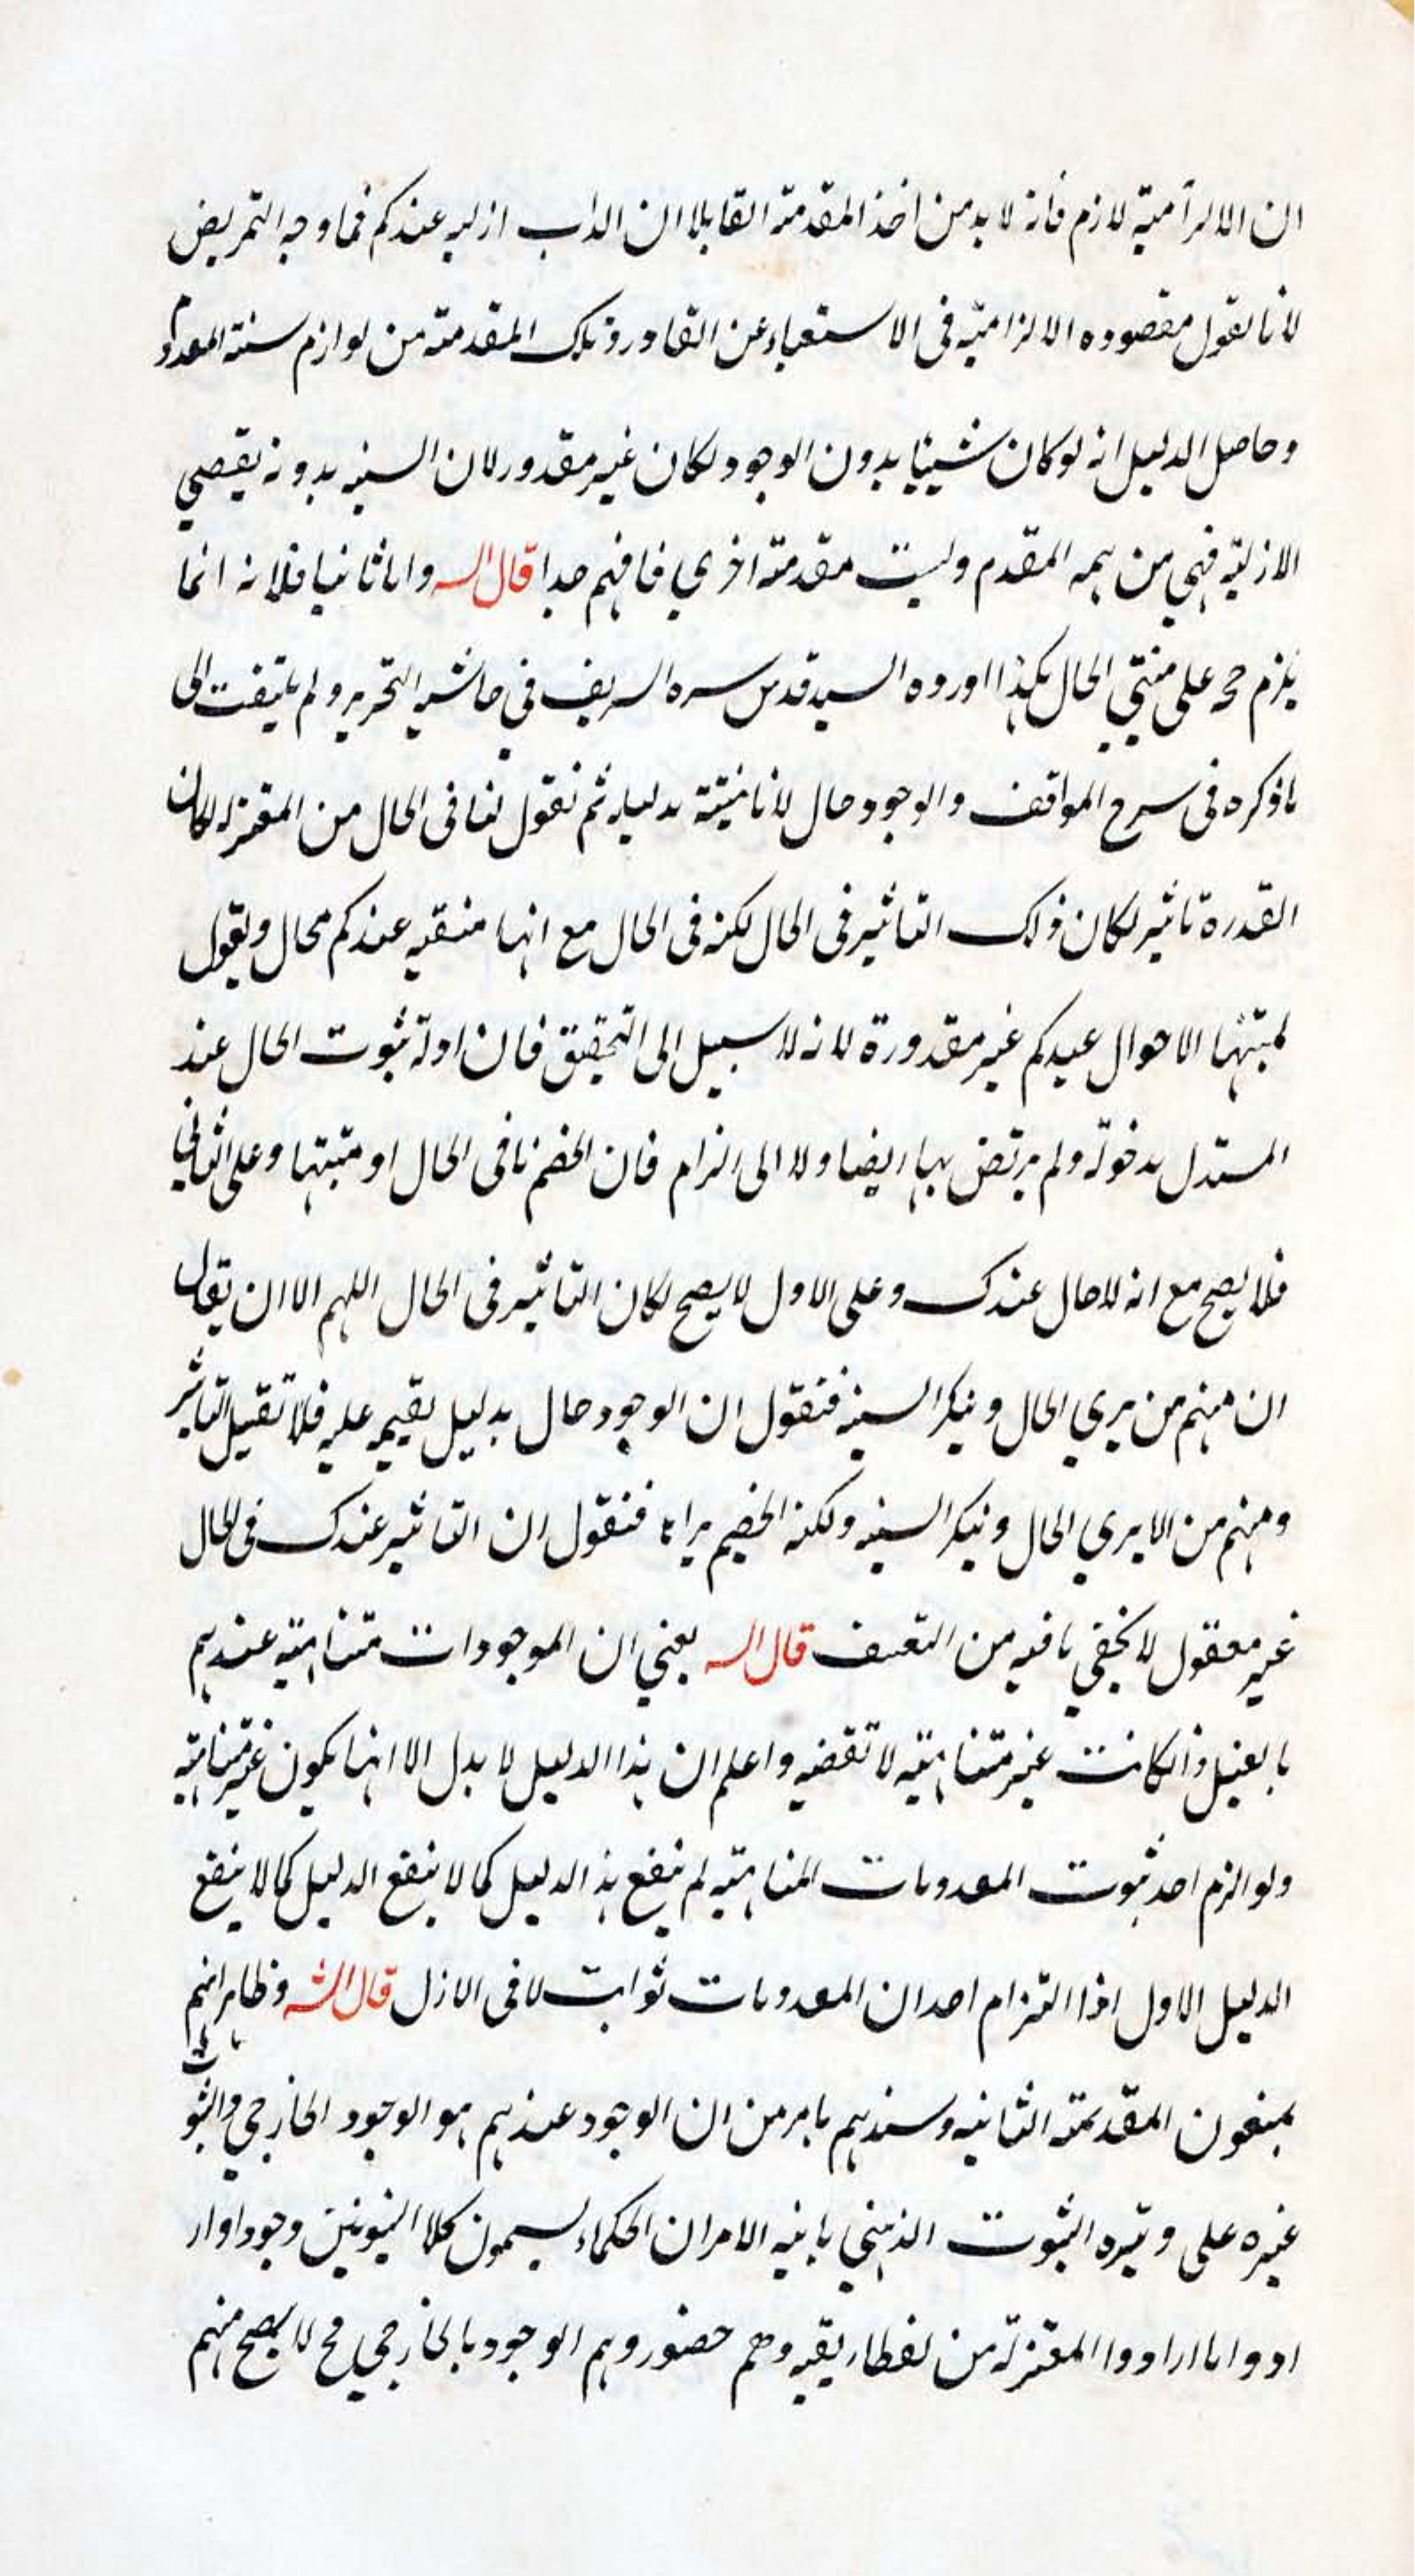 ان الالزامية لازم فانه لا بد من اخذ المقدمة القايلا ان الذاب ازليه عندكم فما وجه التمريض
لأنا نقول مقصوده الالزامية فى الاستعباد عن القادر وتلك المقدمة من لوازم سنية المعدوم
وحاصل الدليل انه لو كان شيئيا بدون الوجود لكان غير مقدور لان السنيه بدونه يقصي
الازلية فهي من تتمه المقدم وليست مقدمة اخري فافهم جدا قال الس واما ثانيا فلانه انما
يلزم حجه على منتي الحال هكذا اورده السيد قدس سره الشريف في حاشيه التحرير ولم يلتفت الى
ماذكره فى سرح المواقف والوجود حال لأنا نثبته بدليله ثم نقول لنا فى الحال من المعتزله لو كان
القدرة تاثير لكان ذلك التاثير فى الحال لكنه فى الحال مع انها منقيه عندكم محال ويقول
لمثبتها الاحوال عندكم غير مقدورة لانه لا سبيل الى التحقيق فان ادلة ثبوت الحال عند
المستدل مدخولة ولم يرتض بها ايضا ولا الى الزام فان الخصم نافى الحال او مثبتها وعلى الثاني
فلا يصح مع انه لا حال عندك وعلى الاول لا يصح لكان التاثير فى الحال اللهم الا ان يقال
ان منهم من يري الحال وينكر السنيه فنقول ان الوجود حال بدليل نقيمه عليه فلا تقبل التاثير
ومنهم من الايري الحال وينكر السنيه ولكنه الخصم يراها فنقول ان التاثير عندك فى الحال
غير معقول لا يخفي مافيه من التعسف قال الس يعني ان الموجودات متناهية عندهم
بالعفيل واذا كانت غير متناهية لا تقضيه واعلم ان هذا الدليل لا يدل الا انها يكون غير متناهية
ولو الزم احد ثبوت المعدومات المناهية لم ينفع هذ الدليل كما لا ينفع الدليل كما لا ينفع
الدليل الاول اذا التزام احد ان المعدومات ثوابت لا فى الازل قال الش وظاهر انهم
يمنعون المقدمة الثانيه وسندهم مامر من ان الوجود عندهم هو الوجود الخارجي والثبو
غيره على وتيره الثبوت الذهني مابنيه الامر ان الحكماء يسمون كلا الثبوتين وجودا وار
ادوا ما ارادوا المعتزلة من لفظ وهم الوجود بالخارجي فح لا يصح منهم